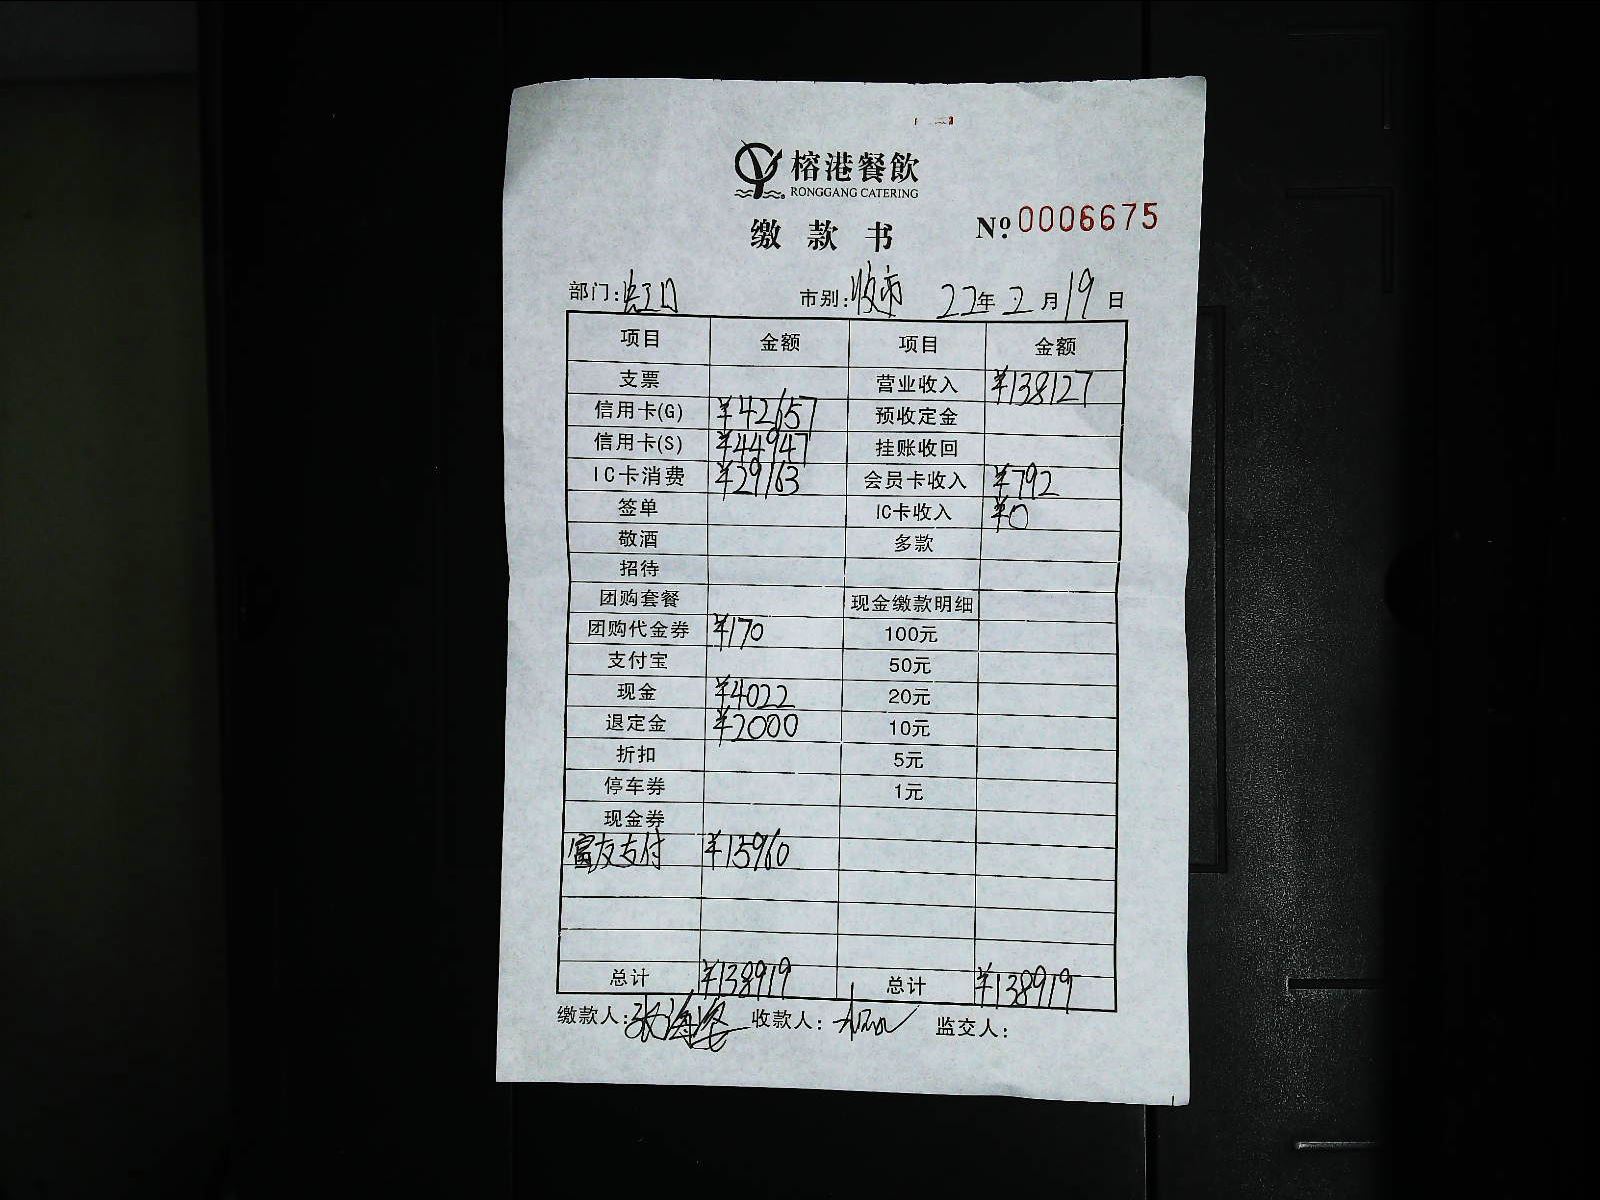 榕港餐飲
RONGGANG CATERING
缴款书 № 0006675
部门:虹口 市别:收市 22年 2月 19日
项目 金额 项目 金额
支票 营业收入 ¥138127
信用卡(G) ¥42657 预收定金
信用卡(S) ¥44947 挂账收回
IC卡消费 ¥29163 会员卡收入 ¥792
签单 IC卡收入 ¥0
敬酒 多款
招待
团购套餐 现金缴款明细
团购代金券 ¥170 100元
支付宝 50元
现金 ¥4022 20元
退定金 ¥2000 10元
折扣 5元
停车券 1元
现金券
富友支付 ¥15960
总计 ¥138919 总计 ¥138919
缴款人: 收款人: 监交人: